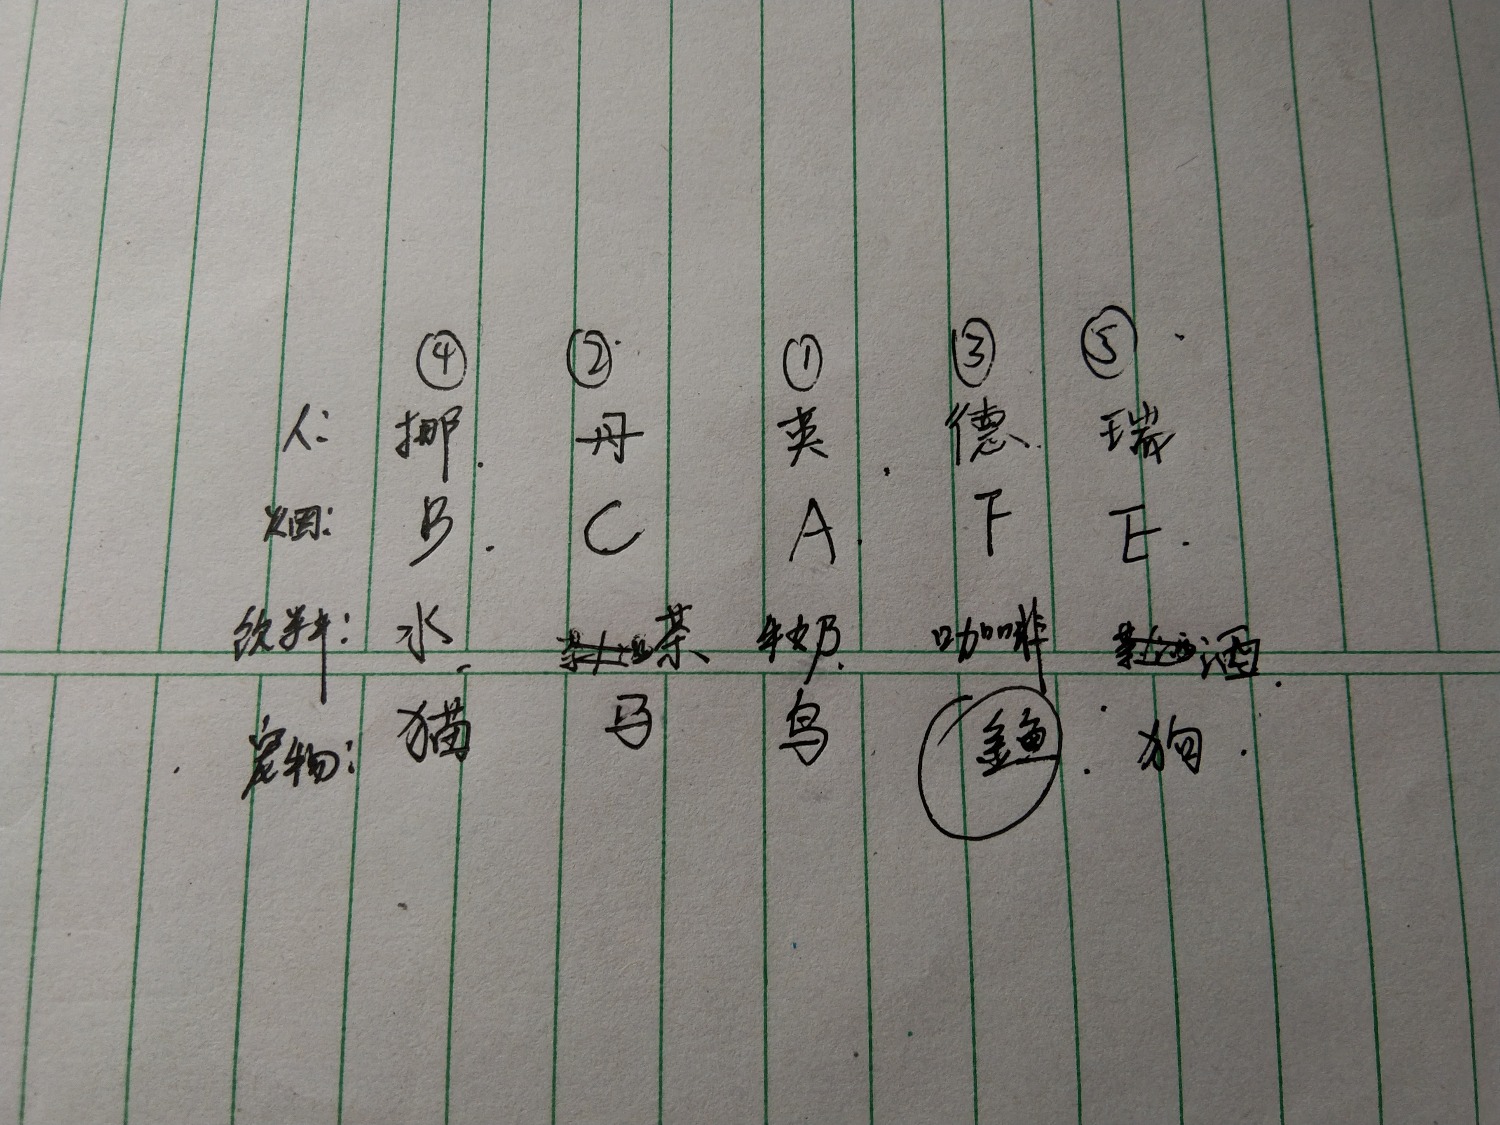 ④ ② ① ③ ⑤
人: 挪 丹 英 德 瑞
烟: B C A F E
饮料: 水 茶 牛奶 咖啡 酒
宠物: 猫 马 鸟 金鱼 狗